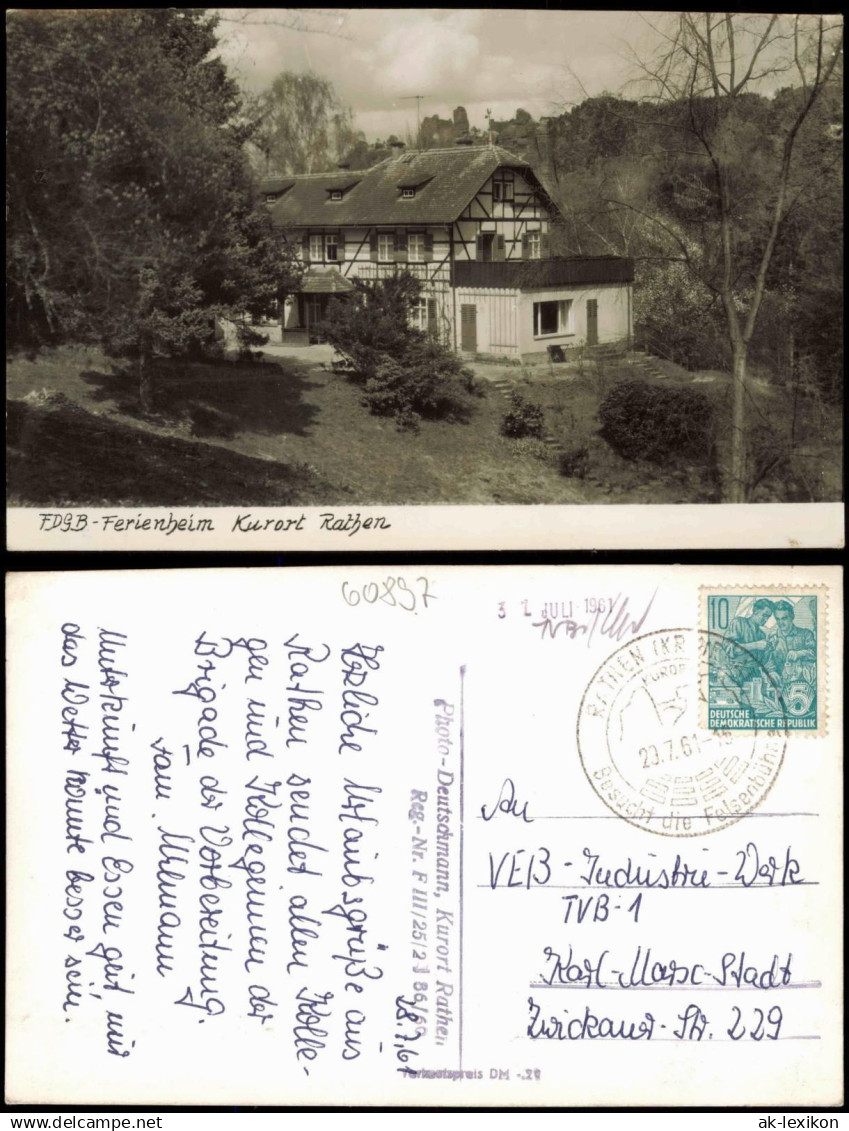 FDGB-Ferienheim Kurort Rathen
60897
3 1. JULI 1961
RATHEN (KR.
KURORT
20.7.61-
Besucht die Felsenbühne
10
5
DEUTSCHE
DEMOKRATISCHE REPUBLIK
18.7.61
Herzliche Urlaubsgrüße aus
Rathen sendet allen Kolle-
gen und Kolleginnen der
Brigade der Vorbereitung.
Fam. Uhlmann
Unterkunft und Essen gut, nur
das Wetter könnte besser sein.
Photo-Deutschmann, Kurort Rathen
Reg.-Nr. F III/25/2
Verkaufspreis DM -.29
An
VEB-Industrie-Werk
TVB-1
Karl-Marx-Stadt
Zwickauer-Str. 229
ak-lexikon